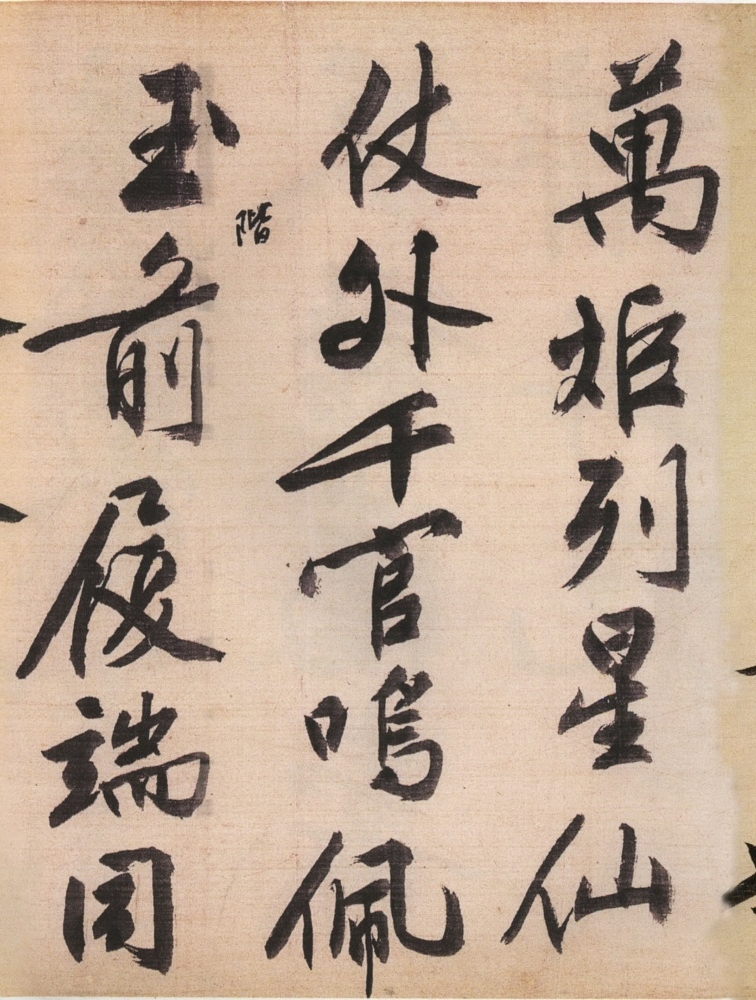 萬炬列星仙
仗外千官鳴佩
玉階前履端同